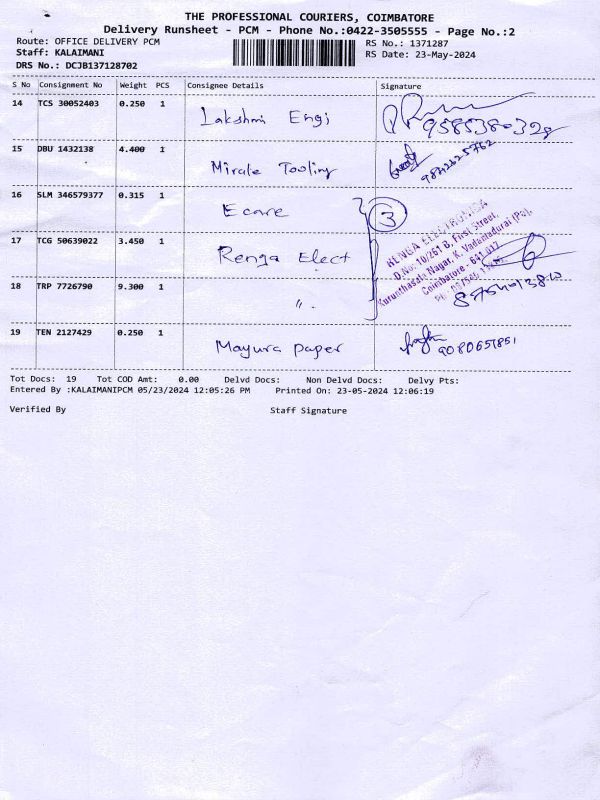 THE PROFESSIONAL COURIERS, COIMBATORE
Delivery Runsheet - PCM - Phone No.:0422-3505555 - Page No.:2
Route: OFFICE DELIVERY PCM RS No.: 1371287
Staff: KALAIMANI RS Date: 23-May-2024
DRS No.: DCJB137128702
S No Consignment No Weight PCS Consignee Details Signature
14 TCS 30052403 0.250 1 Lakshmi Engi 9585380329
15 DBU 1432138 4.400 1 Mirale Tooling 9842625762
16 SLM 346579377 0.315 1 Ecare 3
RENGA ELECTRONICA
D.No. 10/261 B, First Street,
Kurunthasala Nagar, K. Vadamadurai (Po),
Coimbatore - 641 017
17 TCG 50639022 3.450 1 Renga Elect
18 TRP 7726790 9.300 1 ".
19 TEN 2127429 0.250 1 Mayura paper 9080657851
Tot Docs: 19 Tot COD Amt: 0.00 Delvd Docs: Non Delvd Docs: Delvy Pts:
Entered By :KALAIMANIPCM 05/23/2024 12:05:26 PM Printed On: 23-05-2024 12:06:19
Verified By Staff Signature